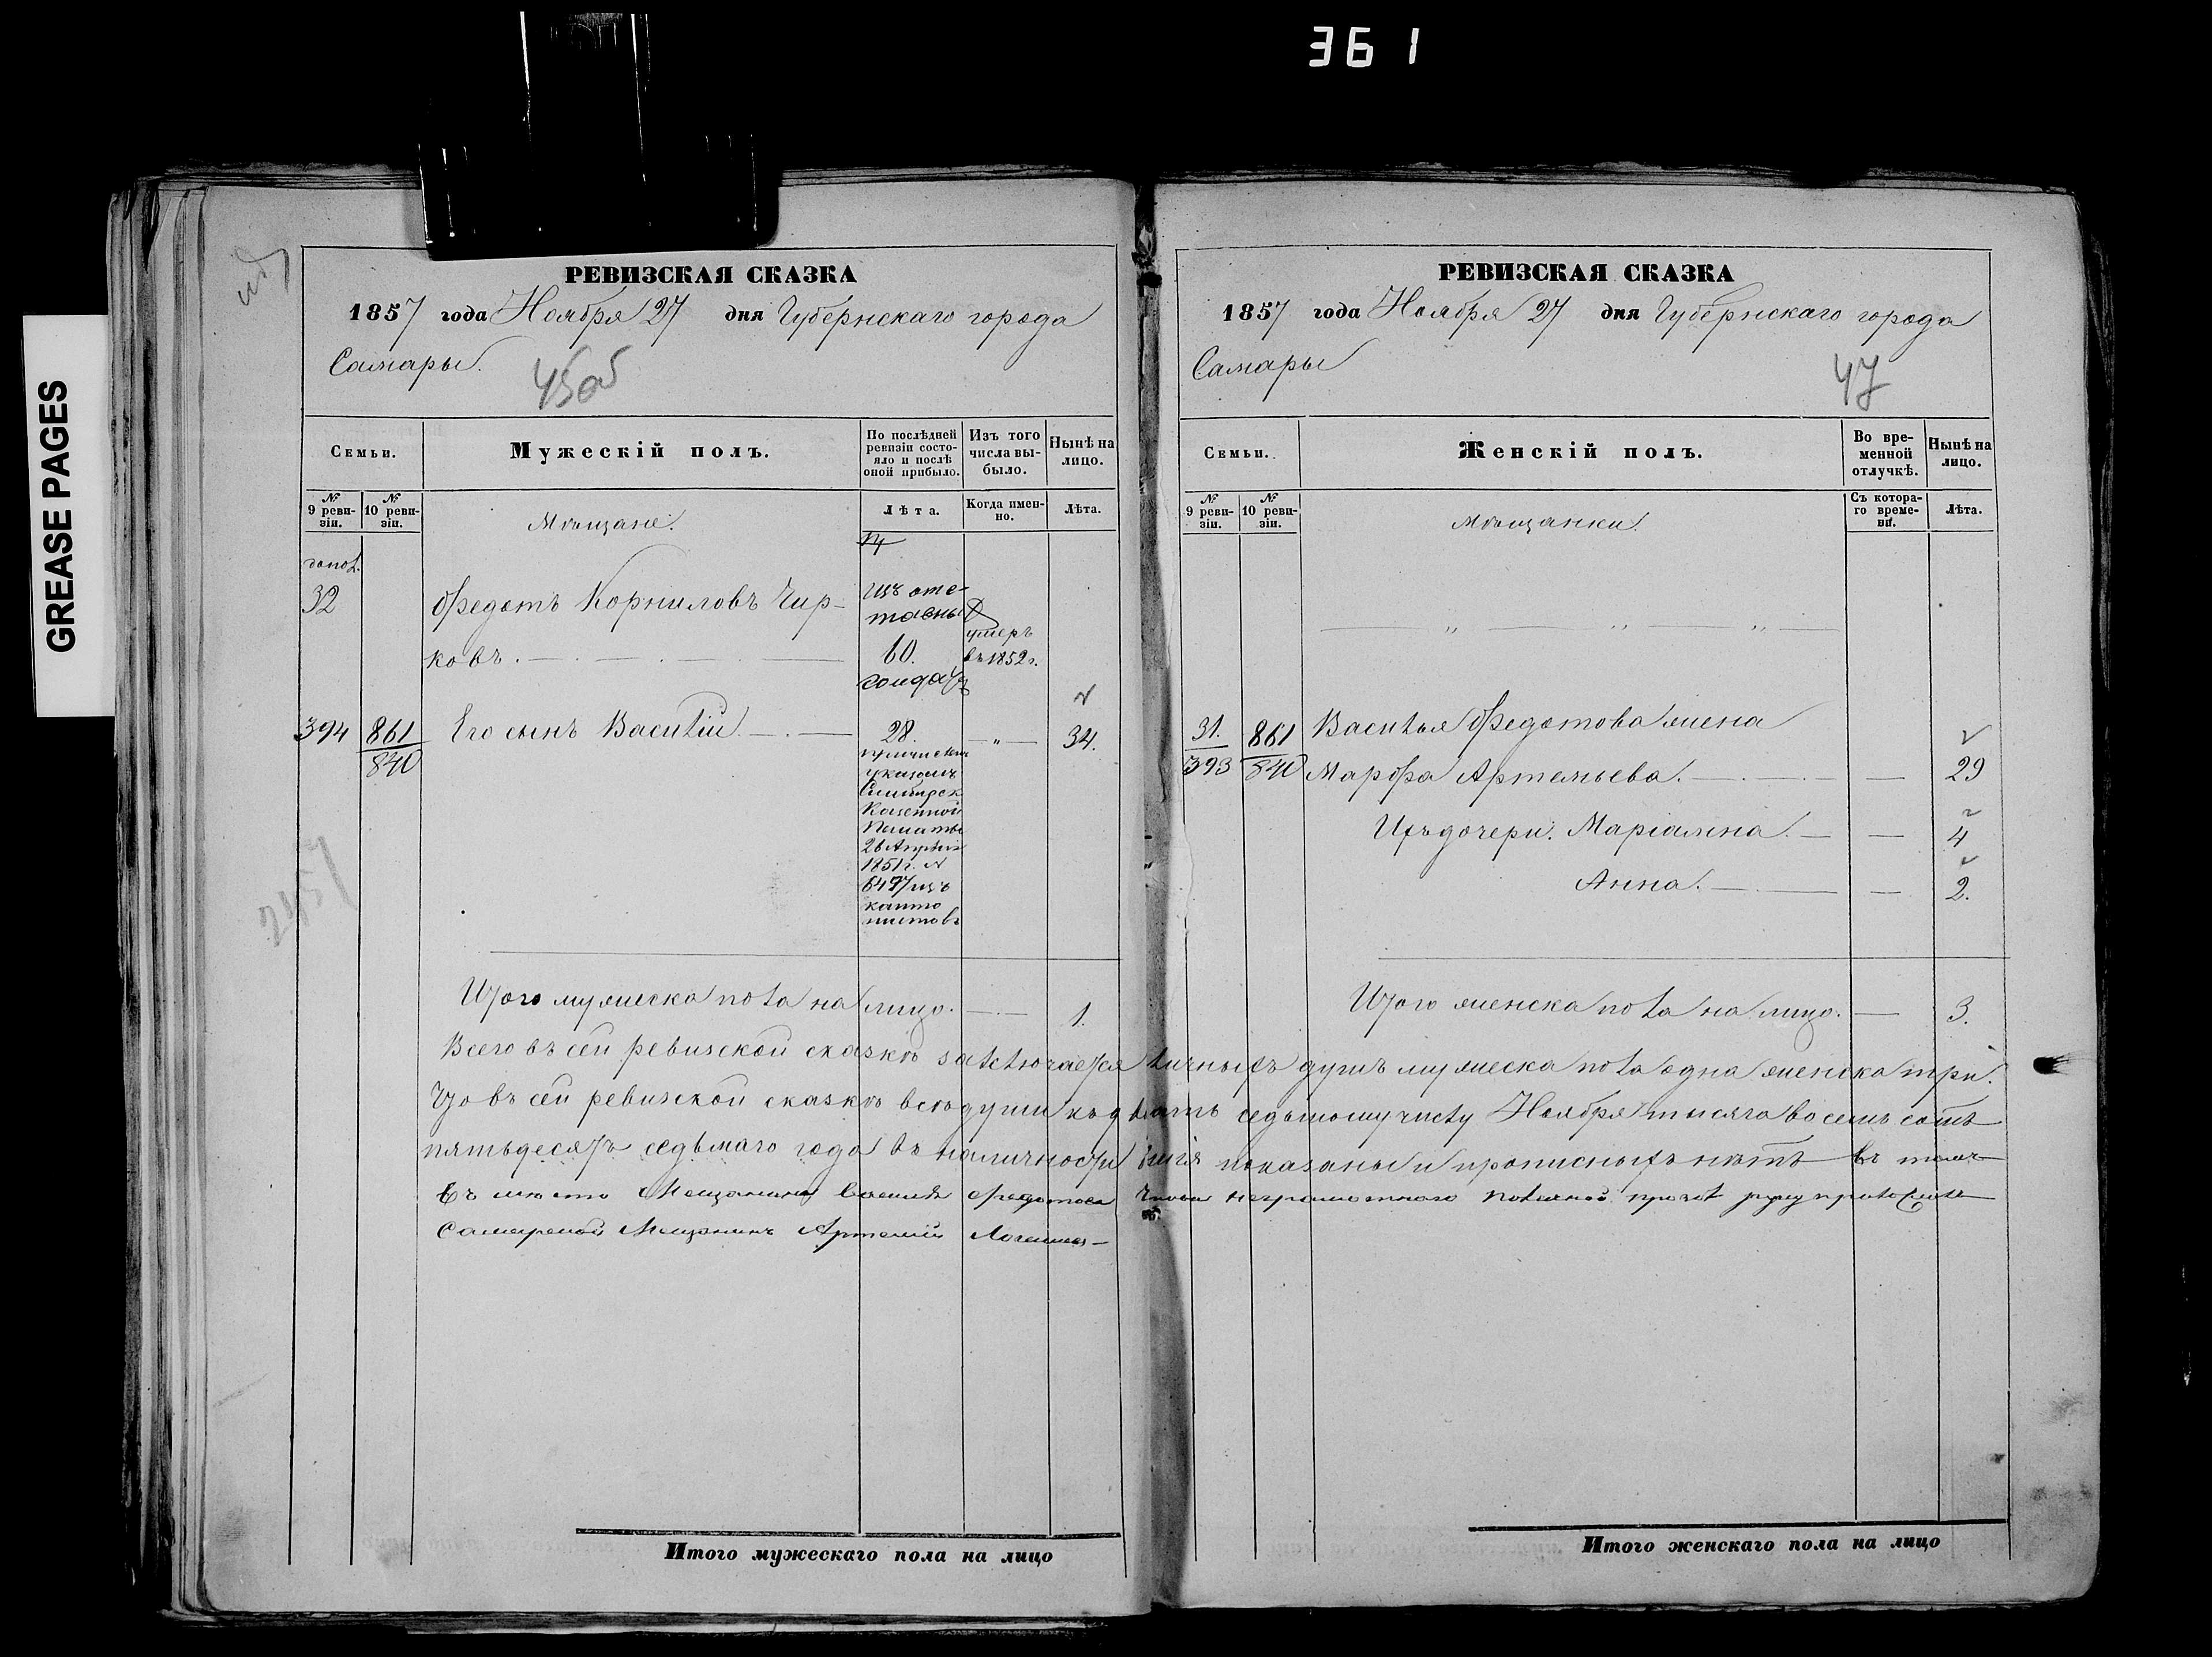 361
GREASE PAGES
РЕВИЗСКАЯ СКАЗКА
1857 года Ноября 27 дня Губернскаго города
Самары.
450б
Семьи.
Мужескій полъ.
По послѣдней ревизіи состояло и послѣ оной прибыло.
Изъ того числа выбыло.
Нынѣ на лицо.
№ 9 ревизіи.
№ 10 ревизіи.
Лѣта.
Когда именно.
Лѣта.
Мѣщане.
допол.
32
Федотъ Корниловъ Чир-
ковъ.
изъ отс-
тавны
60.
солдатъ
умеръ
въ 1852 г.
394
861
840
Его сынъ Василій
28.
"
34.
указомъ
Симбирск
Казенной
Палаты
26 Апрѣля
1851 г. №
6497 изъ
канто
нистовъ
Итого мужеска пола на лицо.
1.
РЕВИЗСКАЯ СКАЗКА
1857 года Ноября 27 дня Губернскаго города
Самары
47
Семьи.
Женскій полъ.
Во временной отлучкѣ.
Нынѣ на лицо.
№ 9 ревизіи.
№ 10 ревизіи.
Съ котораго времени.
Лѣта.
Мѣщанки.
" " "
31.
393
861
840
Василья Федотова жена
Марфа Артемьева.
29
Ихъ дочери: Маріамна
4
Анна.
2.
Итого женска пола на лицо.
3.
Всего въ сей ревизской сказкѣ заключается личныхъ душъ мужеска пола одна женска три.
Что въ сей ревизской сказкѣ всѣ души къ двать седьмому числу Ноября тысяча восемь сотъ
пятьдесятъ седьмаго года въ наличности показаны и прописныхъ нѣтъ въ томъ
въ мѣсто Мещанина Василія Федотова неграмотнаго руку приложилъ
Самарской Мещанинъ Артемій
Итого мужескаго пола на лицо
Итого женскаго пола на лицо